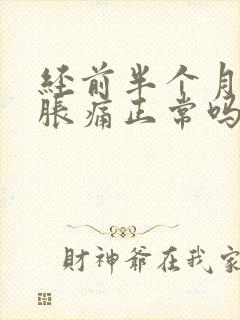 经前半个月
胀痛正常吗
財神爺在我家